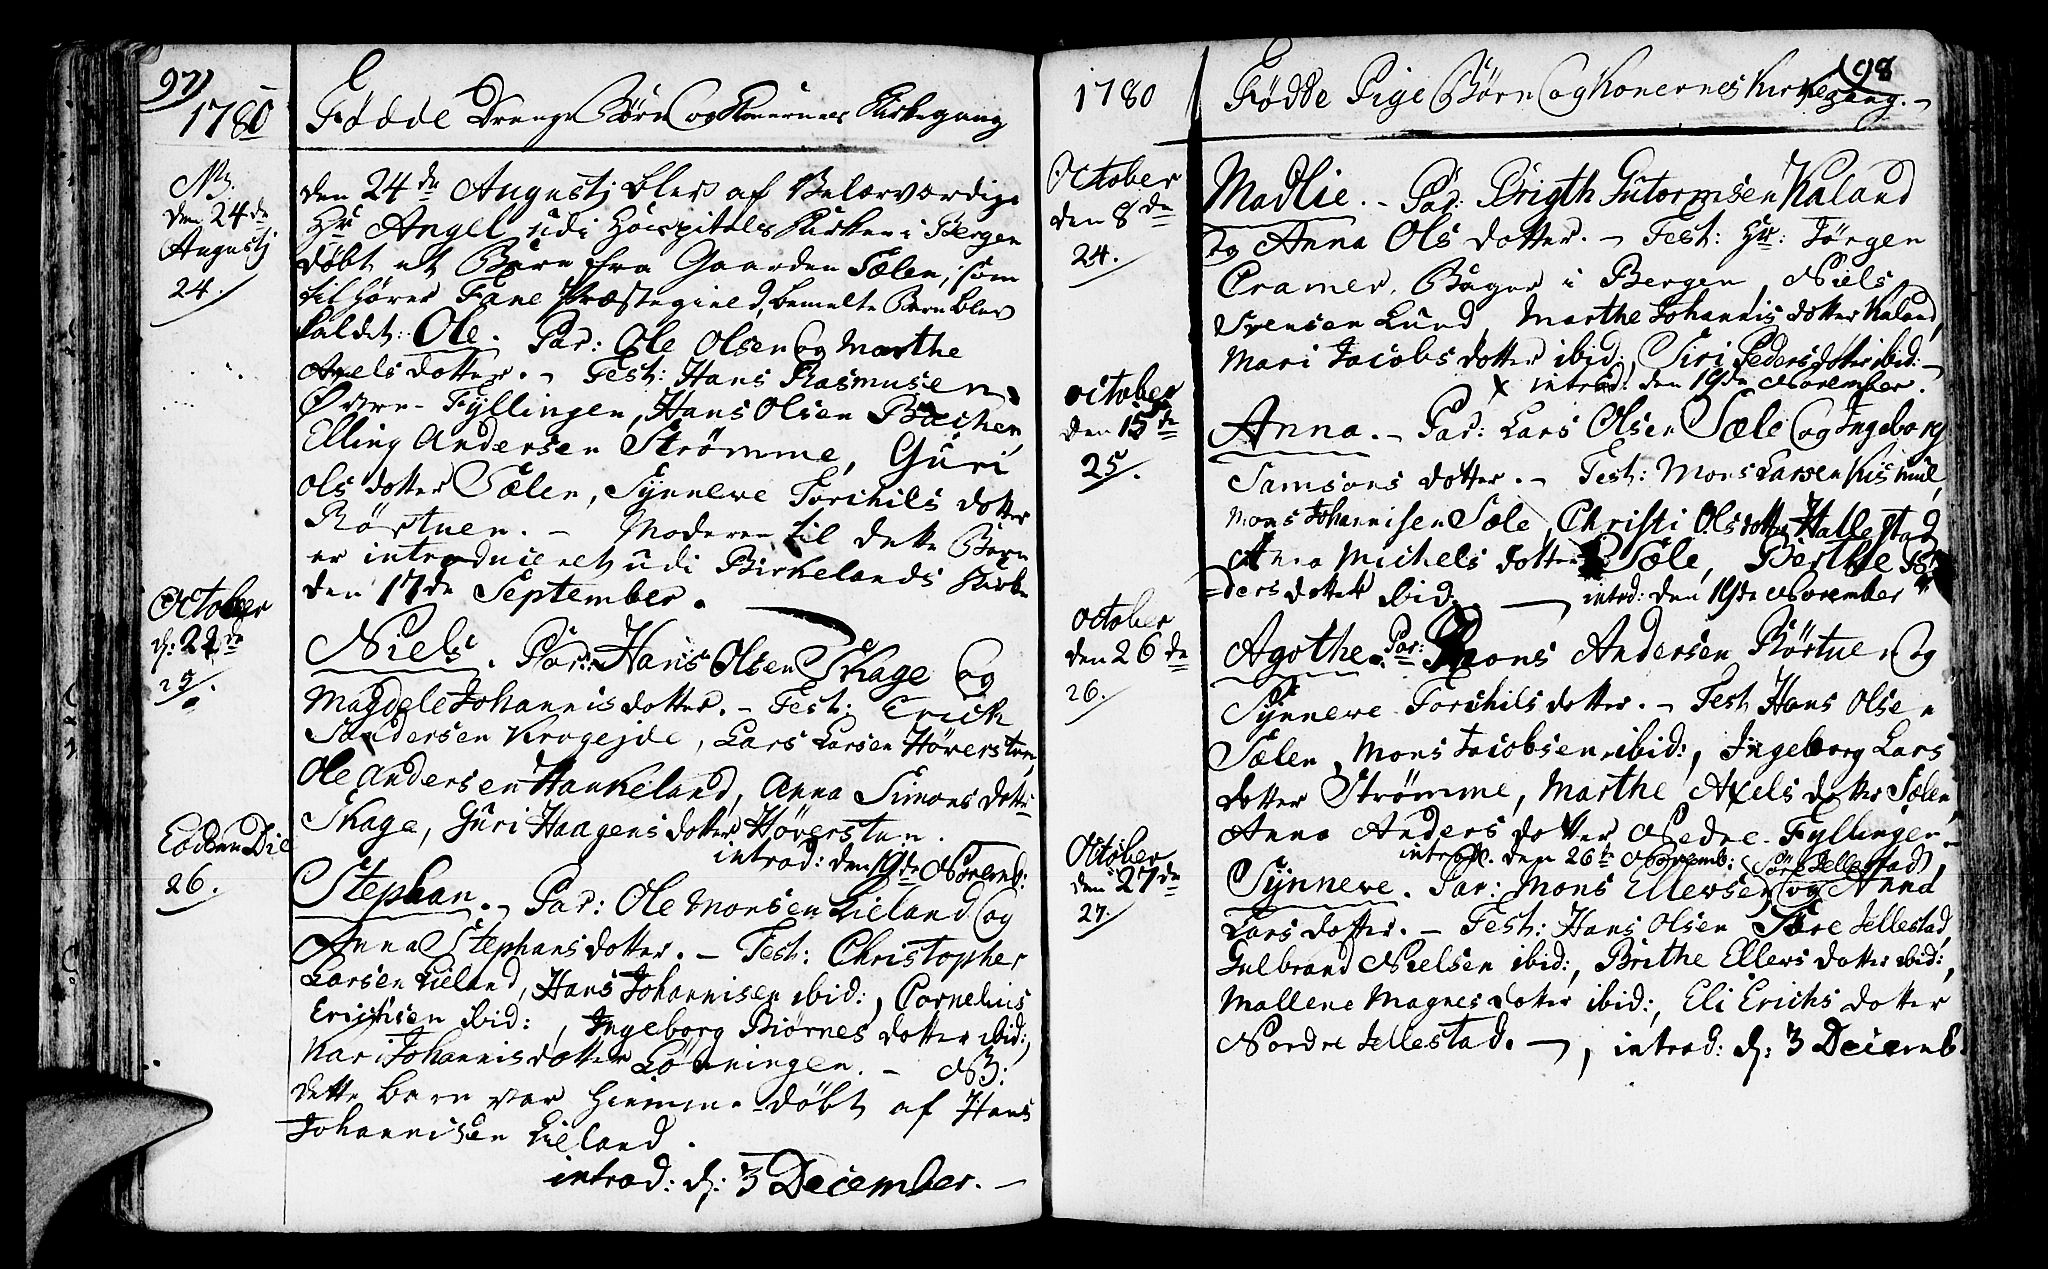 97)
1780
Fødde Drenge Børn og Konernes Kirkegang
NB.
den 24de
Augustj
24.
den 24de Augustj blev af Velærværdige
Hr Angel udi Hospitals Kirken i Bergen
døbt et Barn fra Gaarden Sælen, som
tilhører Fane Præstegield, bemelte Barn blev
kaldet: Ole. Par: Ole Olsen og Marthe
Axels dotter. - Test: Hans Rasmusen
Øvre-Fyllingen, Hans Olsen Bæchen,
Elling Andersen Strømme, Guri
Ols dotter Sælen, Synneve Torchils dotter
Rørtuen. - Moderen til dette Barn
er introduceret udi Birkelands Kirke
den 17de September.
October
d: 22de
25.
Niels. Par: Hans Olsen Skage og
Magdele Johannis dotter. - Test: Erich
Sandersen Krogejde, Lars Larsen Höversteen,
Ole Andersen Haukeland, Anna Simons dotter
Skage, Guri Haagens dotter Höversteen.
introd: den 19de Novemb:
Eodem Die
26.
Stephan. - Par: Ole Monsen Lieland og
Anna Stephans dotter. - Test: Christopher
Larsen Lieland, Hans Johannisen ibid:, Cornelius
Erichsen ibid:, Ingeborg Biørnes dotter ibid:,
Kari Johannis dotter Løvningen. - NB:
dette barn var hiemme-døbt af Hans
Johannisen Lieland.
introd: d: 3 December. -
98
1780
Fødde Pige Børn og Konernes Kirkegang. -
October
den 8de
24.
Madlie. - Par: Brigth Gutormsen Kaland
og Anna Ols dotter. - Test: Hr: Jørgen
Cramer, Bager i Bergen, Niels
Svensen Lund, Marthe Johannis dotter Kaland,
Mari Jacobs dotter ibid:, Siri Peders dotter ibid: -
x introd: den 19de November.
October
den 15de
25.
Anna. - Par: Lars Olsen Sæle og Ingeborg
Samsons dotter. - Test: Mons Larsen Kismul,
Mons Johannisen Sæle, Christi Ols dotter Hallestad
Anna Michels dotter Sæle, Berthe
ders dotter ibid. - introd: den 19de November
October
den 26de
26.
Agothe. Par: Mons Andersen Rørtuen og
Synneve Torchils dotter. - Test Hans Olsen
Sælen, Mons Jacobsen ibid:, Ingeborg Lars
dotter Strømme, Marthe Axels dotter Sælen,
Anna Anders dotter Nedre-Fyllingen -
introd. den 26de Novemb:
October
den 27de
27.
Søre Jellestad,
Synneve. Par: Mons Ellevsen og Anna
Lars dotter. - Test: Hans Olsen Søre Jellestad,
Gulbrand Nielsen ibid:, Brithe Ellers dotter ibid:,
Mallene Magnes dotter ibid:, Eli Erichs dotter
Nordre Jellestad. -, introd: d: 3 Decemb.